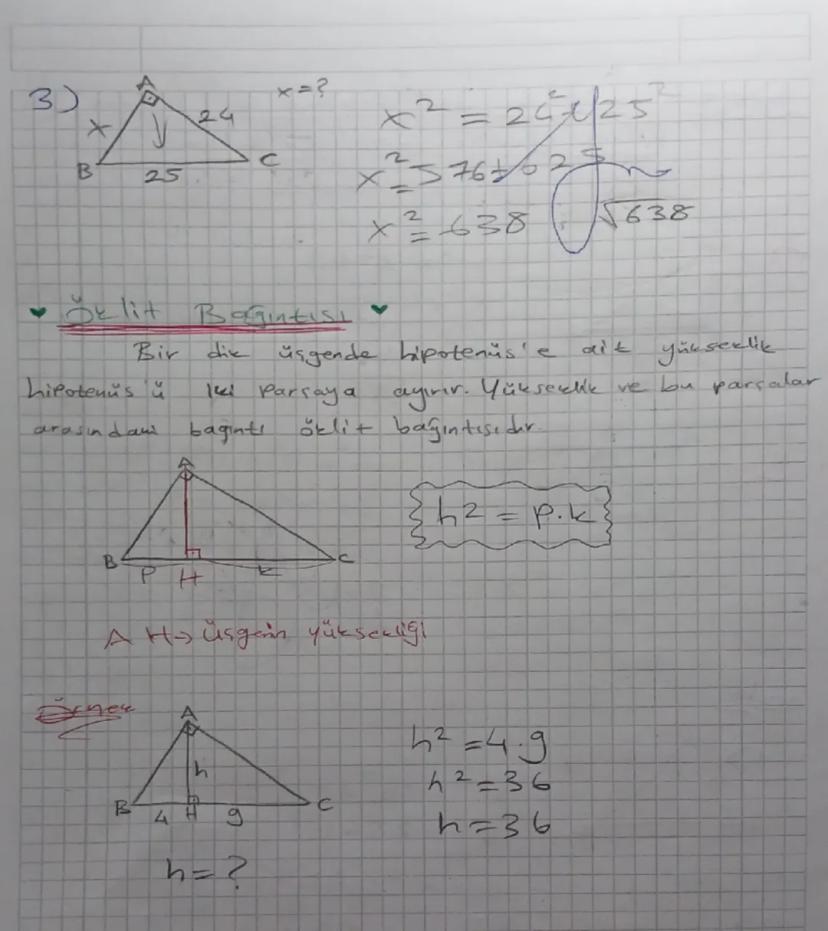 3)
A
x = ?
x
24
B
25
C
x² = 24² + 25²
x² = 576 + 625
x² = 638
√638
Öklit Bağıntısı
Bir dik üsgende hipotenüs'e ait yükseklik
hipotenüs'ü iki parçaya ayırır. Yükseklik ve bu parçalar
arasındaki bağıntı öklit bağıntısıdır.
A
h2 = p.k
B
P
H
k
C
A H → üsgenin yüksekliği
Örnek
A
h
B
4
H
9
C
h² = 4.9
h² = 36
h = 36
h = ?